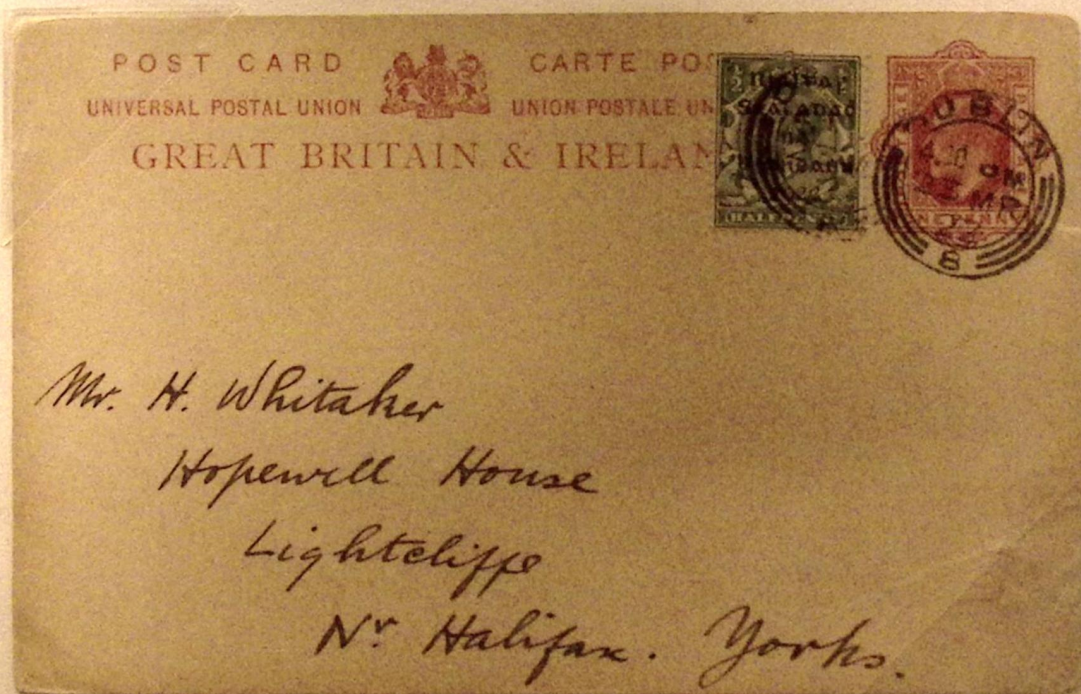 POST CARD CARTE POS
UNIVERSAL POSTAL UNION UNION POSTALE UN
GREAT BRITAIN & IRELAN
HALFPENNY
8
Mr. H. Whitaker
Hopewell House
Lightcliffe
Nr Halifax. Yorks.